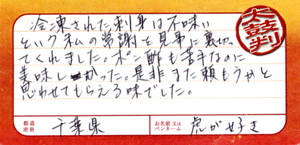 太鼓判
冷凍された刺身は不味い
という私の常識を見事に裏切っ
てくれました。ポン酢も苦手なのに
美味しかった。是非また頼もうかと
思わせてもらえる味でした。
都道府県
千葉県
お名前又はペンネーム
虎が好き